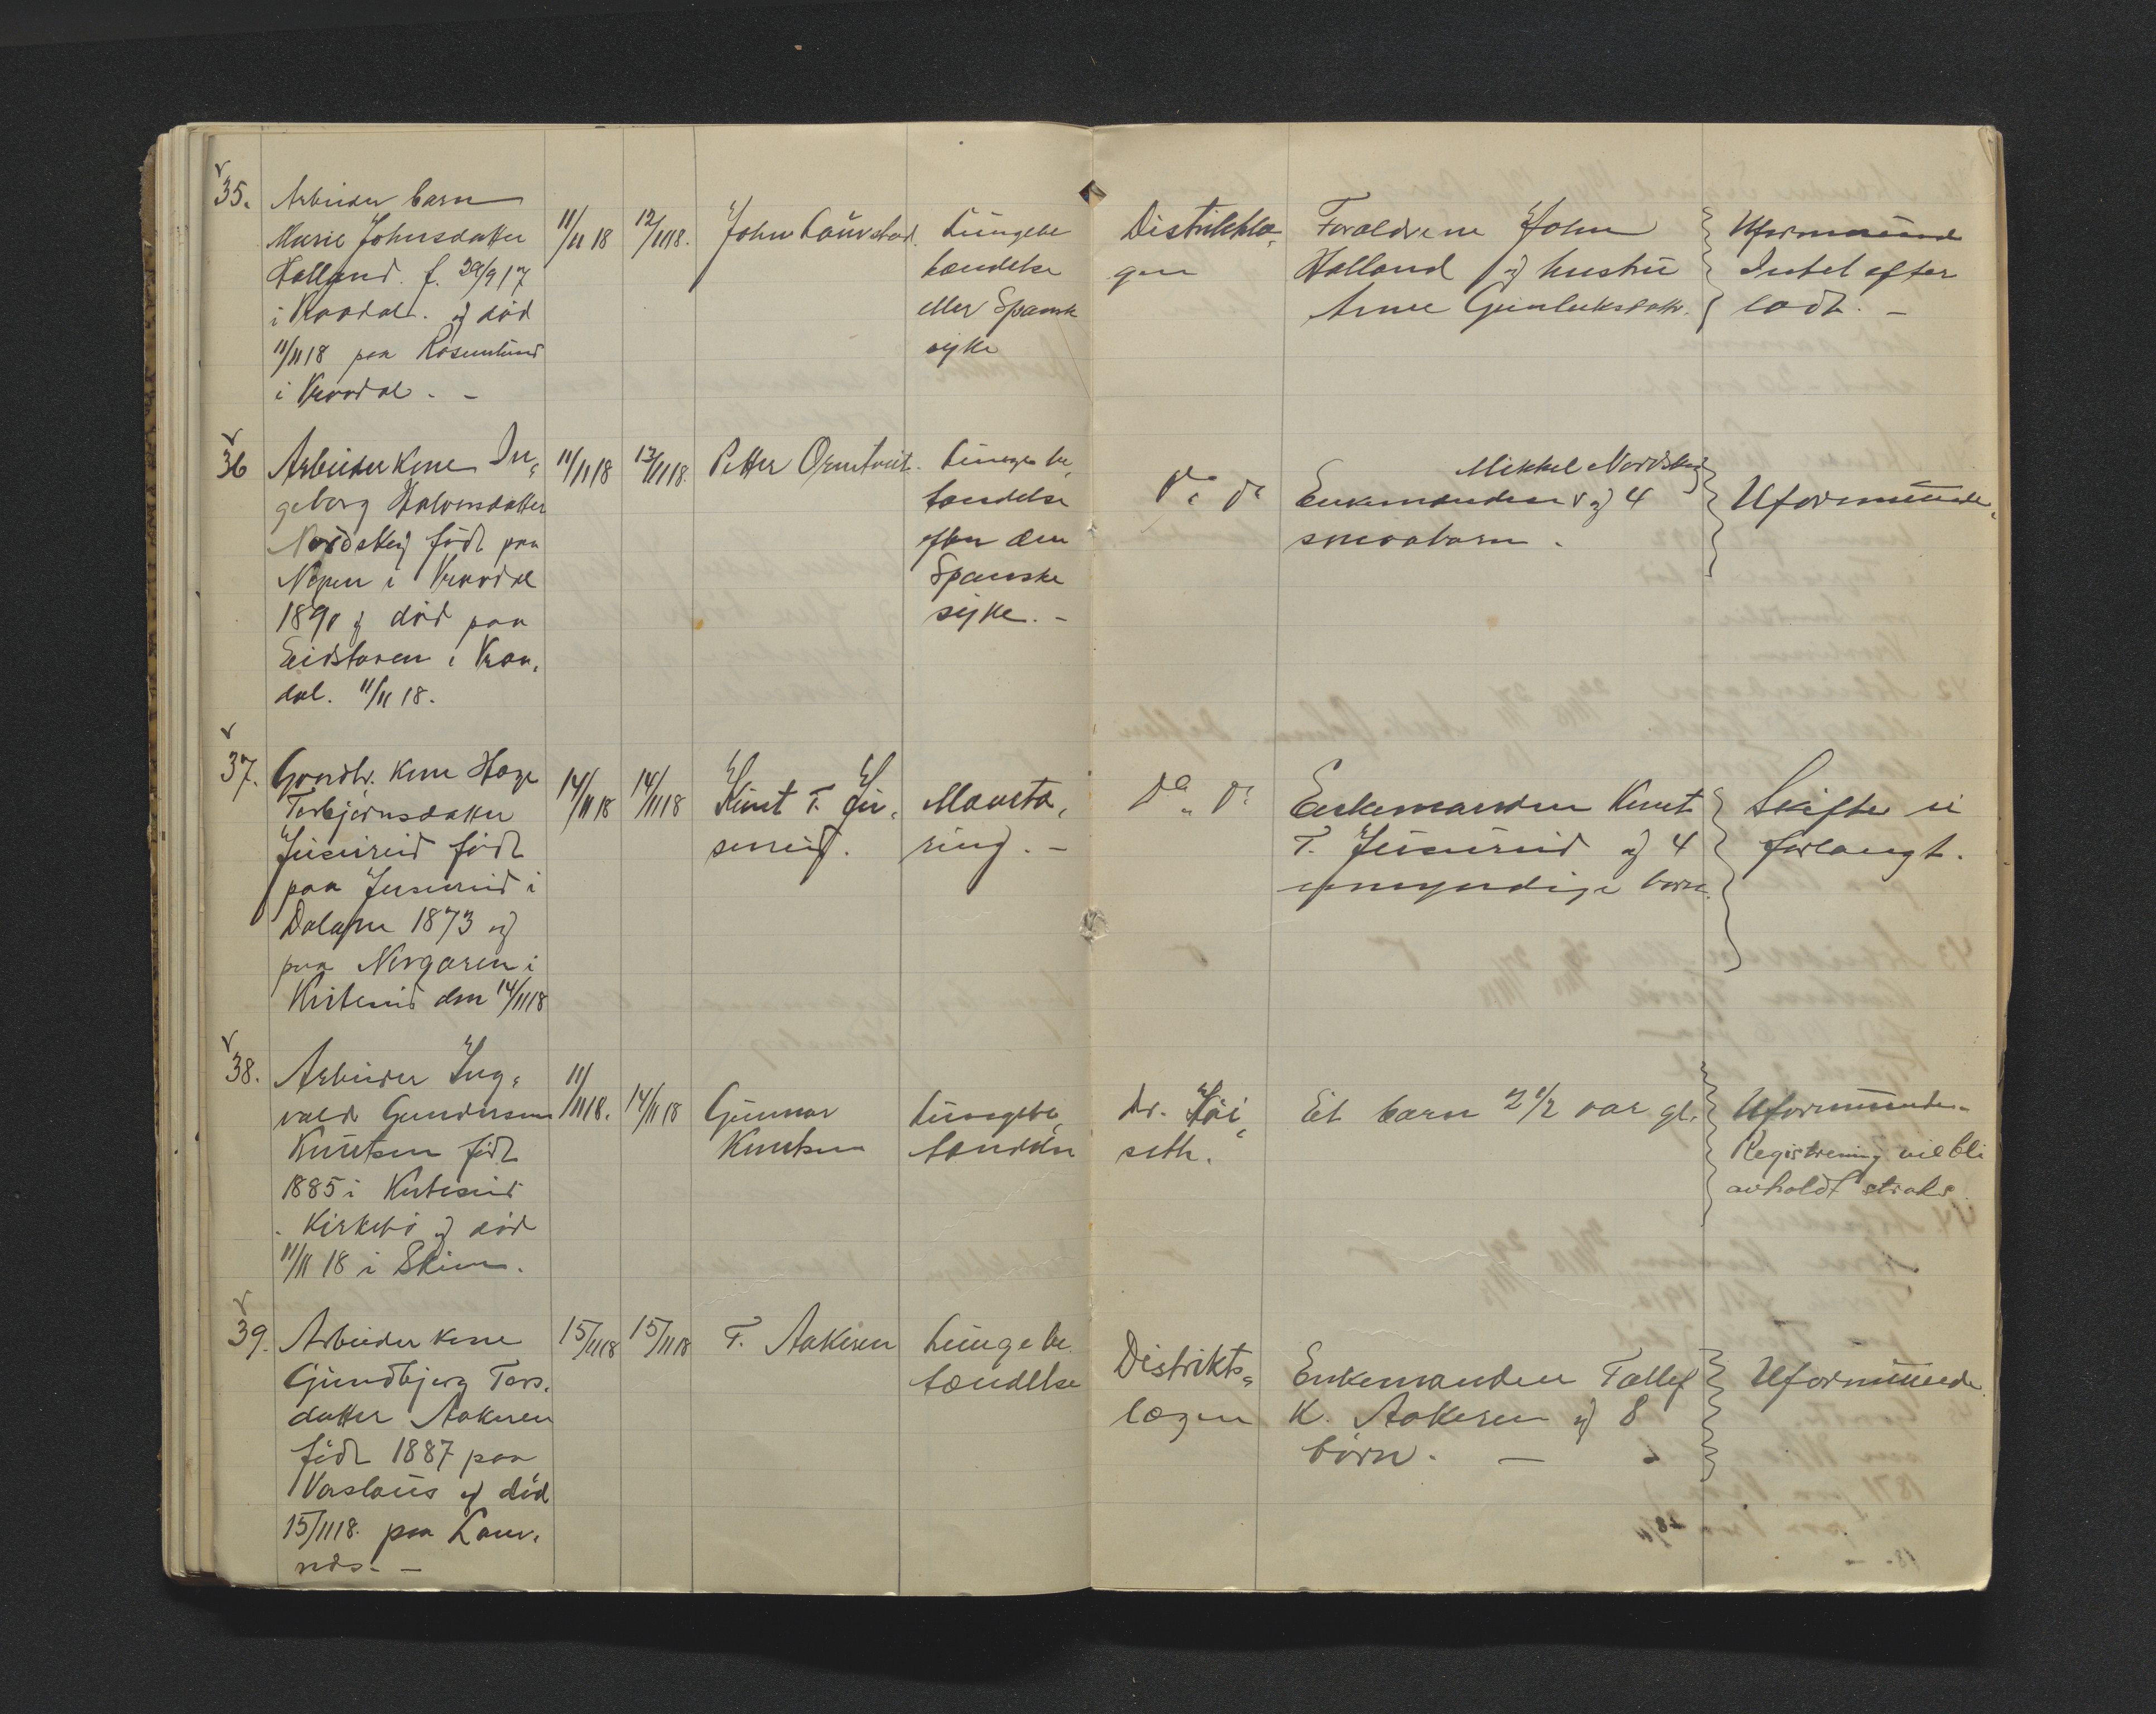 35.
Arbeider barn
Marie Johnsdatter
Halland. f. 29/9 17
i Kvaadal. og död
11/11 18 paa Rosenlund
i Kvaadal. -
11/11 18
12/11 18.
John Laurstad.
Lungebe
tændelse
eller Spansk
syke
Distriktslæ-
gen
Foraldrene John
Halland og hustru
Anne Gunluksdatr.
Uformuende
Intet efter
ladt. -
36
Arbeider Kone In-
geborg Halvorsdatter
Nordskog född paa
i Kvaadal
1890 og död paa
Eidstaren i Kraa-
dal. 11/11 18.
11/11 18
13/11 18.
Petter Ormtveit.
Lungebe-
tændelse
efter den
Spanske
syke. -
Do Do
Mikkel Nordskog
Enkemanden v og 4
smaabarn.
Uformuende.
37.
Gaardbr. Kone Hæge
Torbjörnsdatter
Jusureid född
paa Jusureid i
Dalane 1873 og
paa Nergaren i
Kviteseid den 14/11 18
14/11 18
14/11 18
Knut T. Ju-
sureid.
Mavetæ-
ring. -
Do Do
Enkemanden Knut
T. Jusureid og 4
umyndige born.
Skifte ei
forlangt.
38.
Arbeider Ing-
vald Gundersen
Knutsen född
1885 i Kviteseid
Kirkebö og död
11/11 18 i Skien.
11/11 18.
14/11 18
Gunnar
Knutsen
Lungebe-
tændelse
Dr. Höi-
seth.
Et barn 2 1/2 aar gl.
Uformuende.
Registrering vil bli
avholdt straks.
39.
Arbeider kone
Gundbjorg Tors-
datter Aakeren
född 1887 paa
Vraslaus og död
15/11 18. paa
15/11 18
15/11 18
T. Aakeren
Lungebe
tændelse
Distrikts-
lægen
Enkemanden Tallef
K. Aakeren og 8
börn. -
Uformuende.